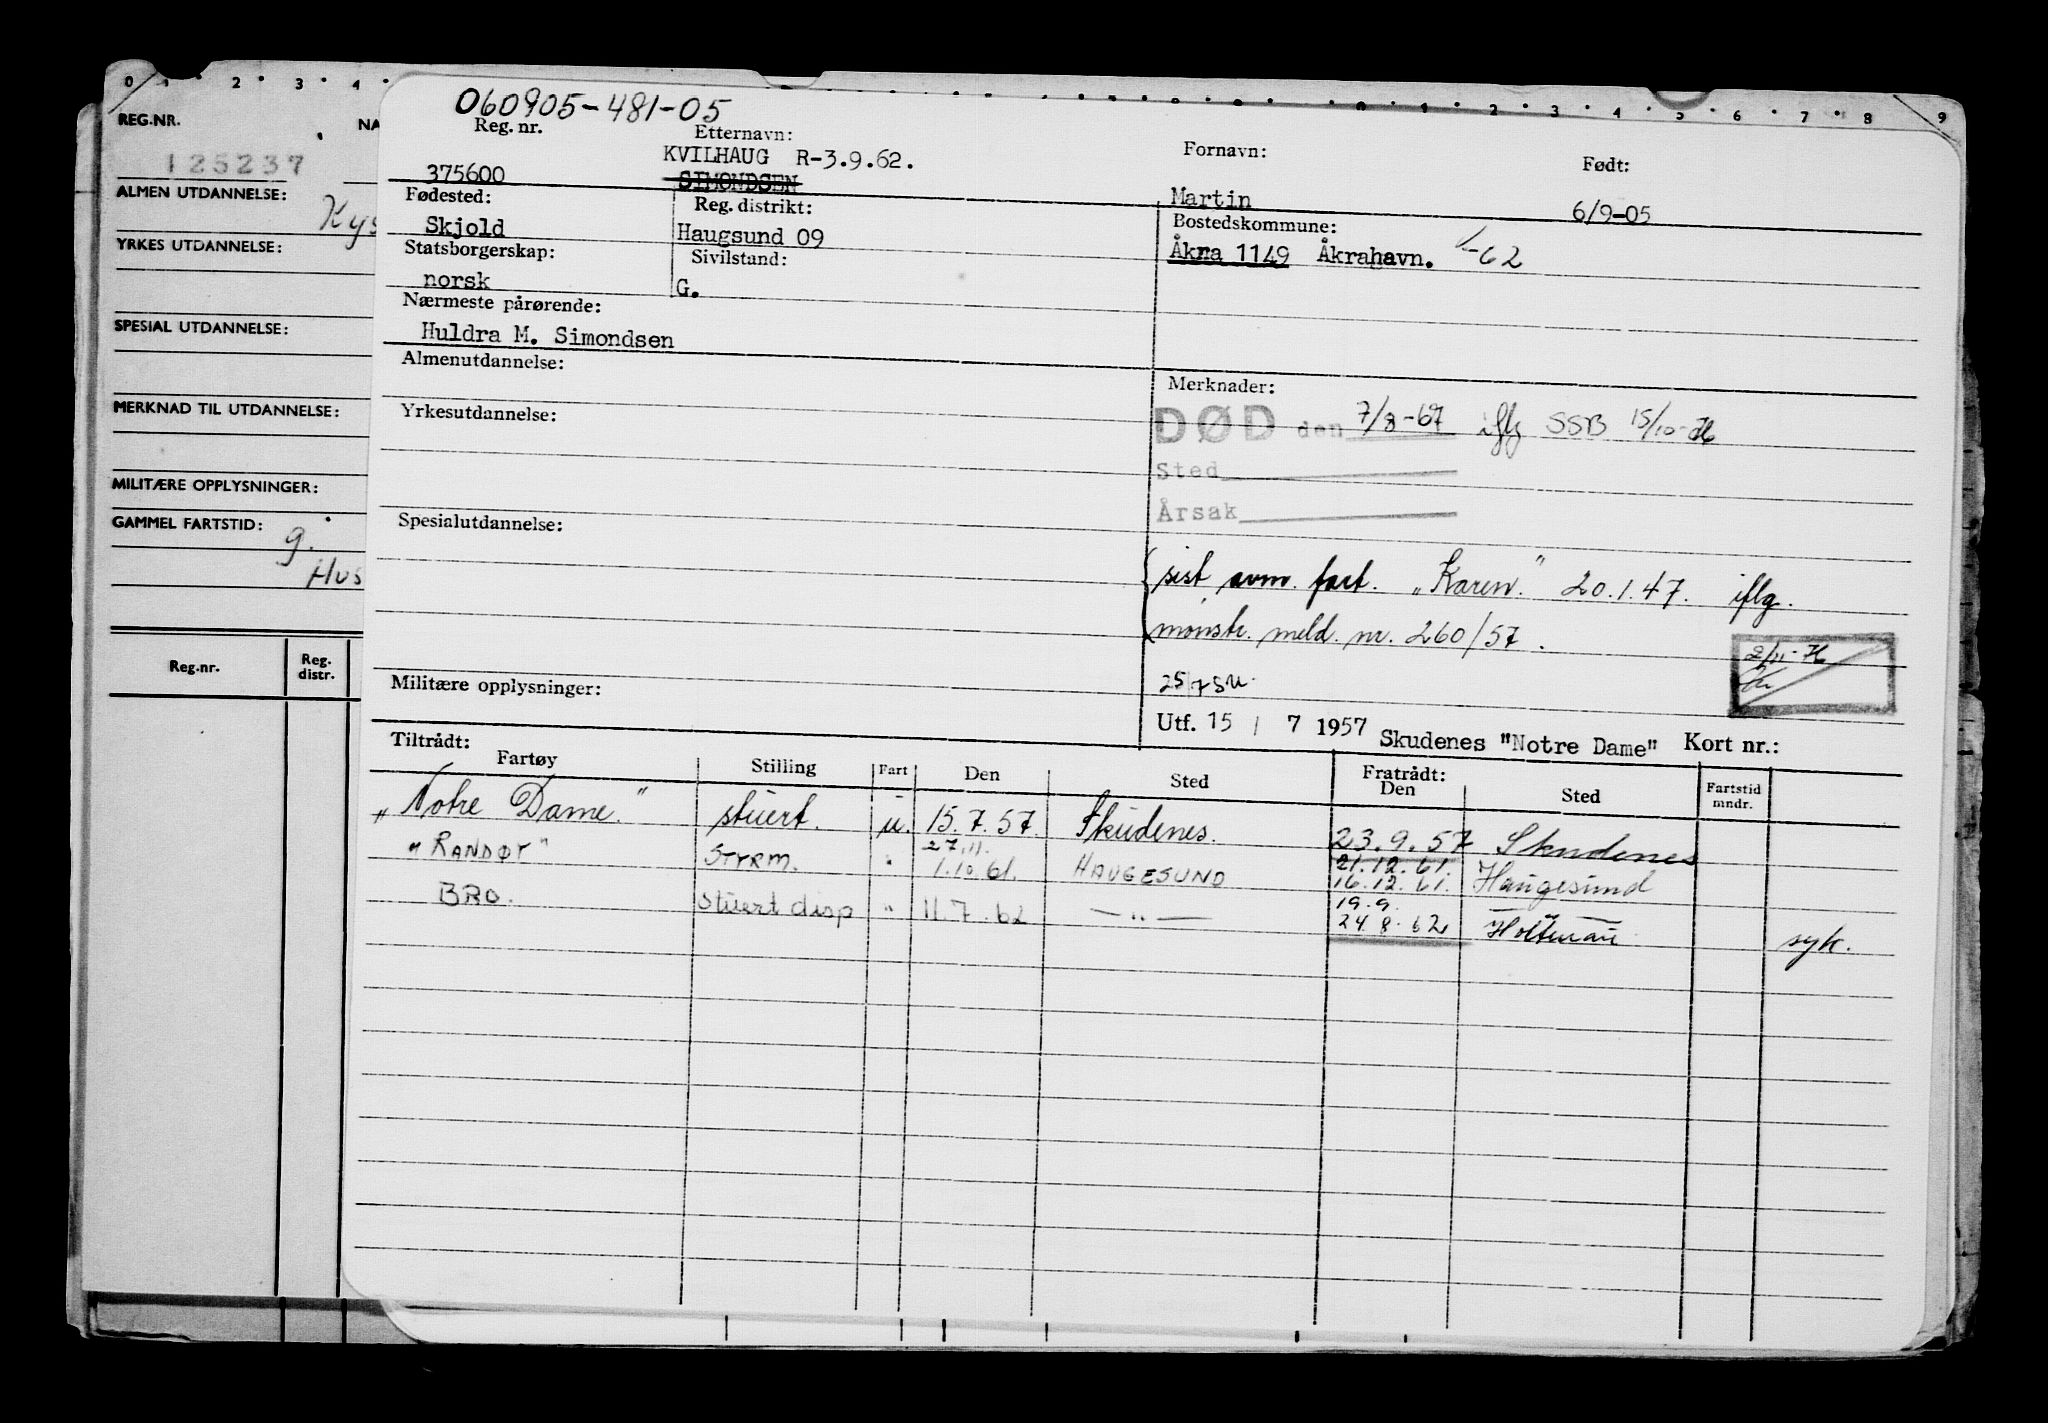 0 1 2 3 4 0 1 2 3 4 5 6 7 8 9
REG.NR. NA
125237
ALMEN UTDANNELSE: Kys
YRKES UTDANNELSE:
SPESIAL UTDANNELSE:
MERKNAD TIL UTDANNELSE:
MILITÆRE OPPLYSNINGER:
GAMMEL FARTSTID: g.
Hus
Reg.nr. Reg. distr.
060905-481-05
Reg. nr. Etternavn: Fornavn: Født:
KVILHAUG R-3.9.62.
375600 SIMONDSEN Martin 6/9-05
Fødested: Reg. distrikt: Bostedskommune:
Skjold Haugsund 09 Åkra 1149 Åkrahavn. -62
Statsborgerskap: Sivilstand:
norsk G.
Nærmeste pårørende:
Huldra M. Simondsen
Almenutdannelse: Merknader:
DØD den 7/8-67 iflg SSB 15/10-76
Yrkesutdannelse:
Sted
Årsak
Spesialutdannelse:
sist avm. fart. "Karen." 20.1.47. iflg.
mønstr. meld. nr. 260/57.
2/11-76
Militære opplysninger:
Utf. 15 / 7 1957 Skudenes "Notre Dame" Kort nr.:
Tiltrådt: Fratrådt:
Fartøy Stilling Fart Den Sted Den Sted Fartstid mndr.
"Notre Dame." stuert. u. 15.7.57. Skudenes. 23.9.57 Skudenes
27.11. 21.12.61.
"RANDØY" STYRM. " 1.10.61. HAUGESUND 16.12.61. Haugesund
19.9.
BRO. Stuert disp " 11.7.62 — " — 24.8.62 Holtenau syk.